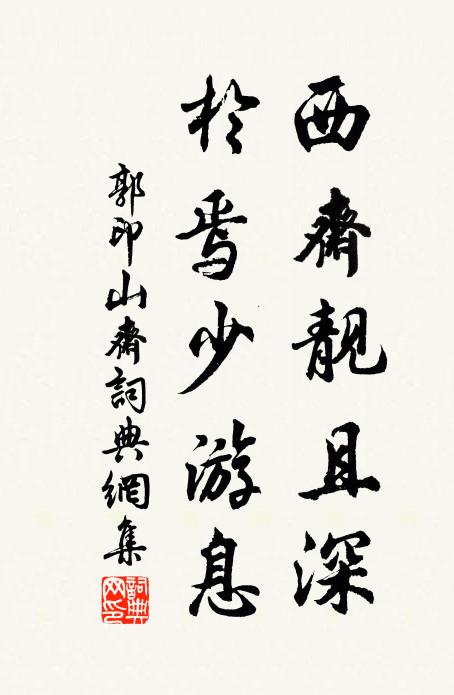 西齋靚且深
於焉少游息
郭印山齋詞典網集
詞典
網印